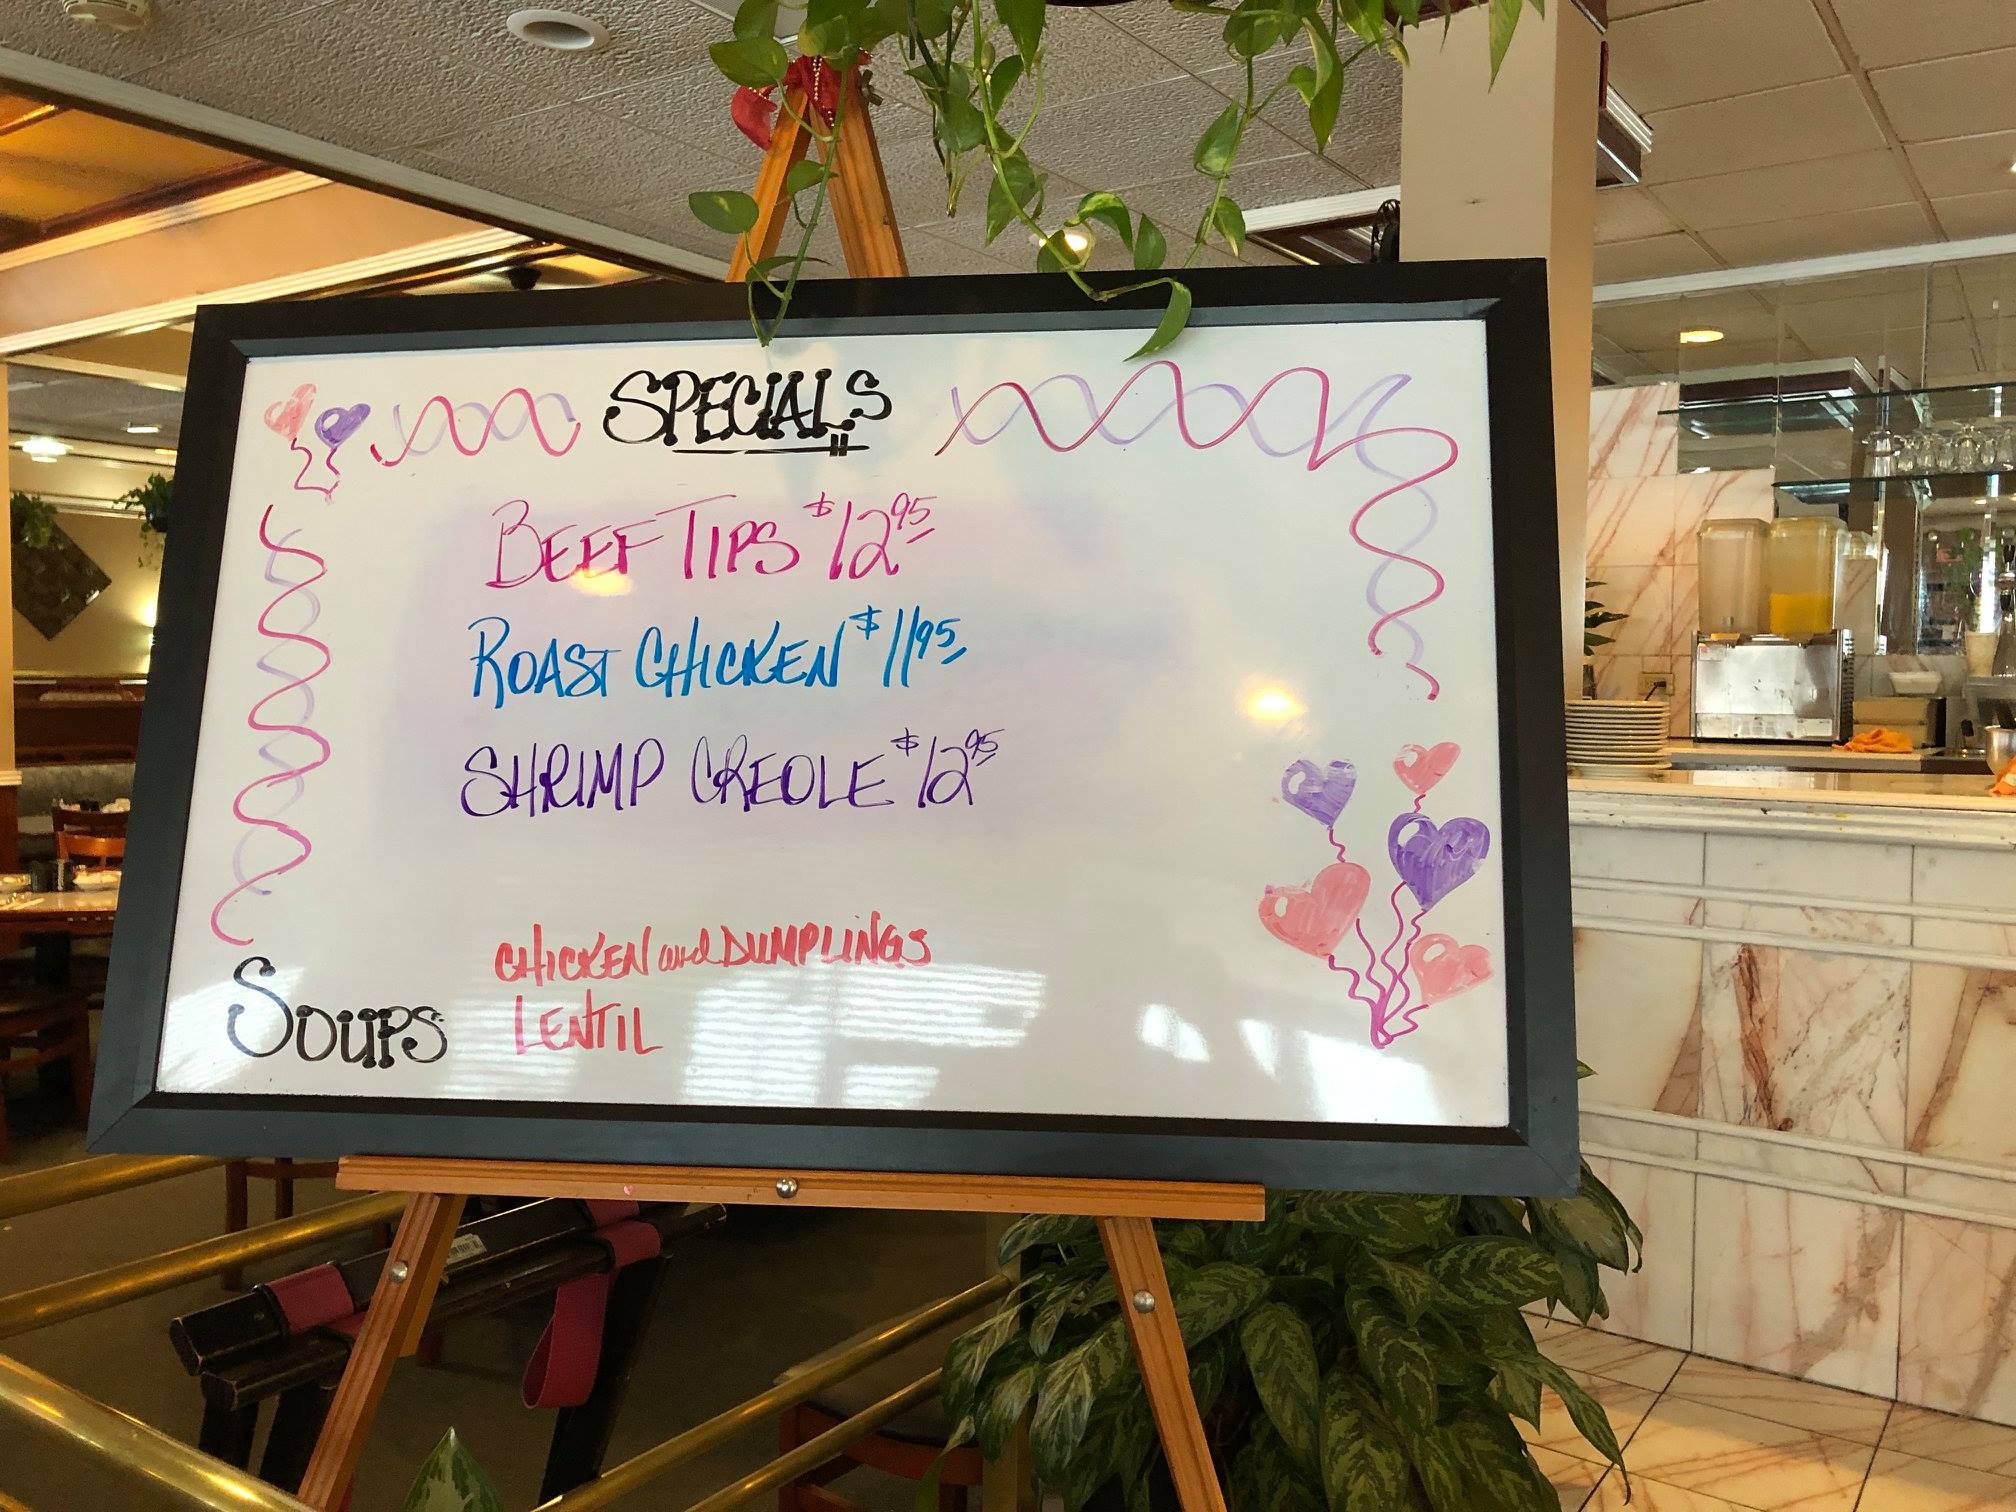 SPECIALS
BEEF TIPS $12.95
ROAST CHICKEN $11.95
SHRIMP CREOLE $12.95
CHICKEN and DUMPLINGS
LENTIL
SOUPS